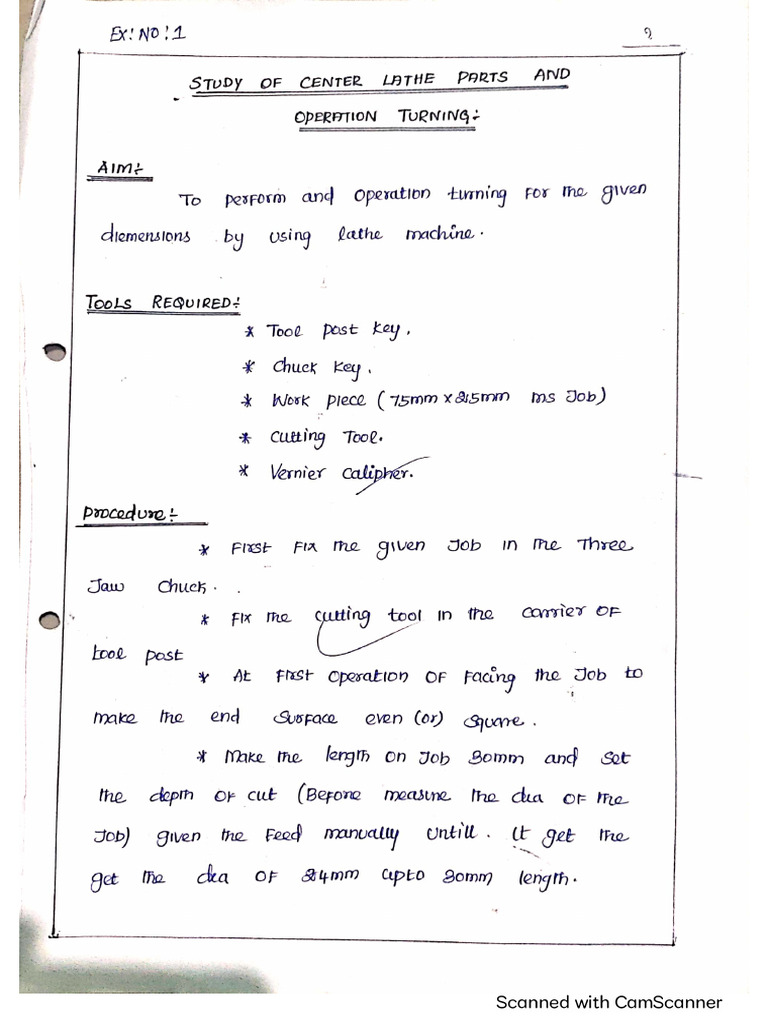 EX:NO:1
STUDY OF CENTER LATHE PARTS AND
OPERATION TURNING:-
AIM:-
To perform and operation turning for the given
diemensions by using lathe machine.
TOOLS REQUIRED:-
* Tool post key.
* Chuck key.
* Work piece (75mm x 25mm ms Job)
* Cutting Tool.
* Vernier calipher.
Procedure:-
* First Fix the given Job in the Three
Jaw Chuck.
* Fix the cutting tool in the carrier of
tool post
* At first operation of facing the Job to
make the end surface even (or) square.
* Make the length on Job 30mm and set
the depth of cut (Before measure the dia of the
Job) given the feed manually untill. It get the
get the dia of 24mm upto 30mm length.
Scanned with CamScanner